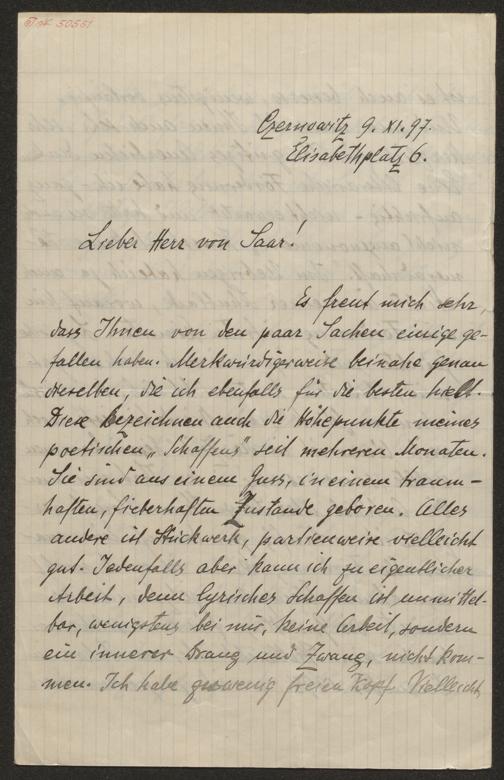 50551
Czernowitz 9. XI. 97.
Elisabethplatz 6.
Lieber Herr von Saar!
Es freut mich sehr,
dass Ihnen von den paar Sachen einige ge-
fallen haben. Merkwürdigerweise beinahe genau
dieselben, die ich ebenfalls für die besten hielt.
Diese bezeichnen auch die Höhepunkte meines
poetischen „Schaffens" seit mehreren Monaten.
Sie sind aus einem Guss, in einem traum-
haften, fieberhaften Zustande geboren. Alles
andere ist Stückwerk, partienweise vielleicht
gut. Jedenfalls aber kann ich zu eigentlicher
Arbeit, denn lyrisches Schaffen ist unmittel-
bar, wenigstens bei mir, keine Arbeit, sondern
ein innerer Drang und Zwang, nicht kom-
men. Ich habe zu wenig freien Kopf. Vielleicht